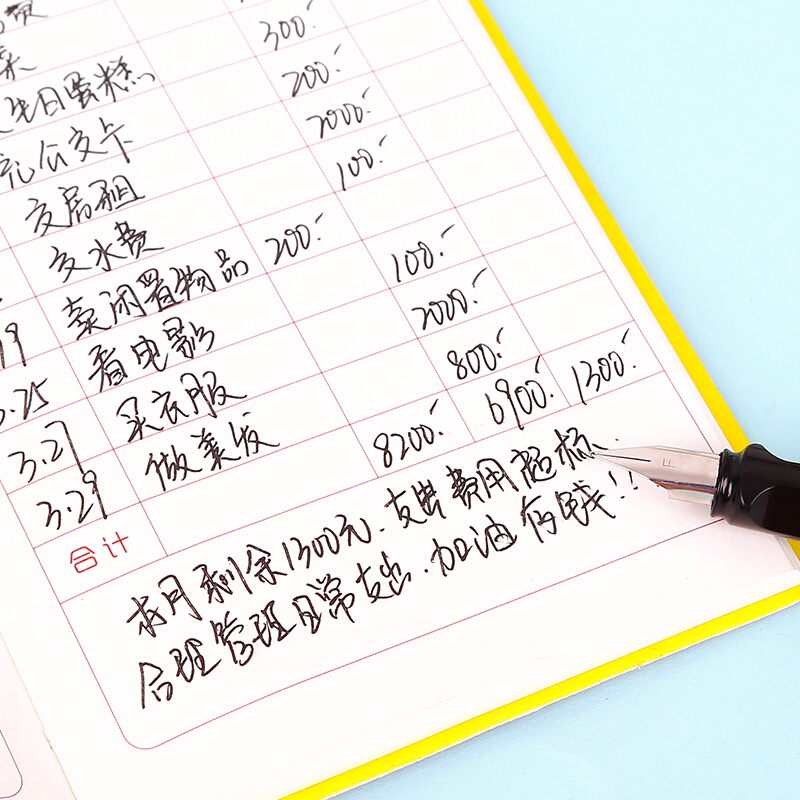 费
菜
生日蛋糕 300.-
充公交卡 200.-
交房租 2000.-
交水费 100.-
19 卖闲置物品 200.-
3.25 看电影 100.-
3.27 买衣服 2000.-
3.29 做美发 800.-
合计 8200.- 6900.- 1300.-
本月剩余1300元.支出费用超标.
合理管理日常支出.加油存钱!!